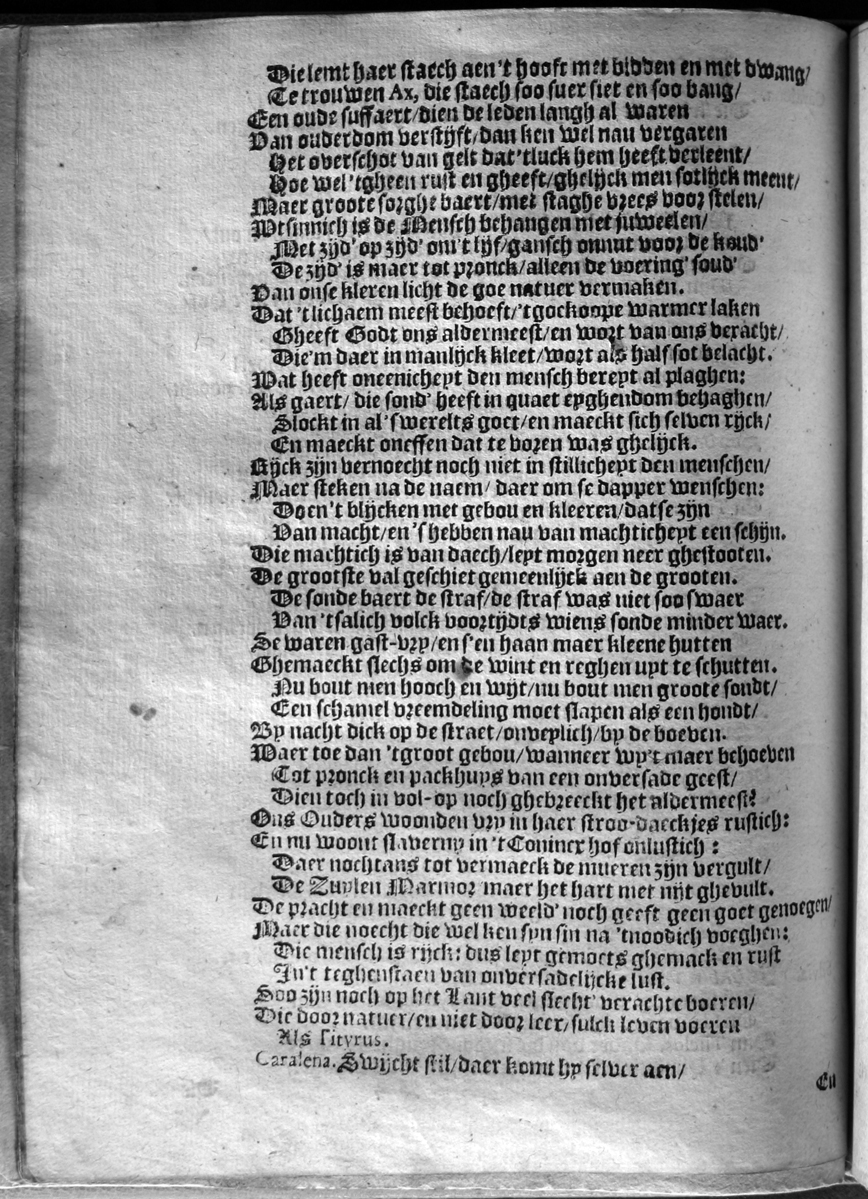 Die lemt haer staech aen't hooft met bidden en met dwang/
Te trouwen Ax, die staech soo suer siet en soo bang/
Een oude suffaert/dien de leden langh al waren
Van ouderdom verstijft/dan ken wel nau vergaren
Het overschot van gelt dat'tluck hem heeft verleent/
Hoe wel 'tgheen rust en gheeft/ghelijck men sotlijck meent/
Maer groote sorghe baert/met staghe vrees voor stelen/
Wtsinnich is de Mensch behangen met juweelen/
Met zijd' op zijd' om't lijf/gansch onnut voor de koud'
De zijd' is maer tot pronck/alleen de voering' soud'
Van onse kleren licht de goe natuer vermaken.
Dat 'tlichaem meest behoeft/'tgoekoope warmer laken
Gheeft Godt ons aldermeest/en wort van ons veracht/
Die'm daer in manlijck kleet/wort als half sot belacht.
Wat heeft oneenicheyt den mensch bereyt al plaghen:
Als gaert/ die sond' heeft in quaet eyghendom behaghen/
Slockt in al 'swerelts goet/en maeckt sich selven rijck/
En maeckt oneffen dat te voren was ghelijck.
Rijck zijn vernoecht noch niet in stillicheyt den menschen/
Maer steken na de naem/ daer om se dapper wenschen:
Doen't blijcken met gebou en kleeren/datse zijn
Van macht/en 's hebben nau van machticheyt een schijn.
Die machtich is van daech/leyt morgen neer ghestooten.
De grootste val geschiet gemeenlijck aen de grooten.
De sonde baert de straf/de straf was niet soo swaer
Van 'tsalich volck voortijdts wiens sonde minder waer.
Se waren gast-vry/en s'en haan maer kleene hutten
Ghemaeckt slechs om de wint en reghen uyt te schutten.
Nu bout men hooch en wijt/nu bout men groote sondt/
Een schamel vreemdeling moet slapen als een hondt/
By nacht dick op de straet/onveylich/by de boeven.
Waer toe dan 'tgroot gebou/wanneer wy't maer behoeven
Tot pronck en packhuys van een onversade geest/
Dien toch in vol-op noch ghebreeckt het aldermeest?
Ons Ouders woonden vry in haer stroo-daeckjes rustich:
En nu woont slaverny in 't Conincx hof onlustich :
Daer nochtans tot vermaeck de mueren zijn vergult/
De Zuylen Marmor maer het hart met nijt ghevult.
De pracht en maeckt geen weeld' noch geeft geen goet genoegen/
Maer die noecht die wel ken syn sin na 'tnoodich voeghen:
Die mensch is rijck: dus leyt gemoets ghemack en rust
In't teghenstaen van onversadelijcke lust.
Soo zijn noch op het Lant veel slecht' verachte boeren/
Die door natuer/en niet door leer/sulck leven voeren
Als Tityrus.
Caralena. Swijcht stil/daer komt hy selver aen/
En